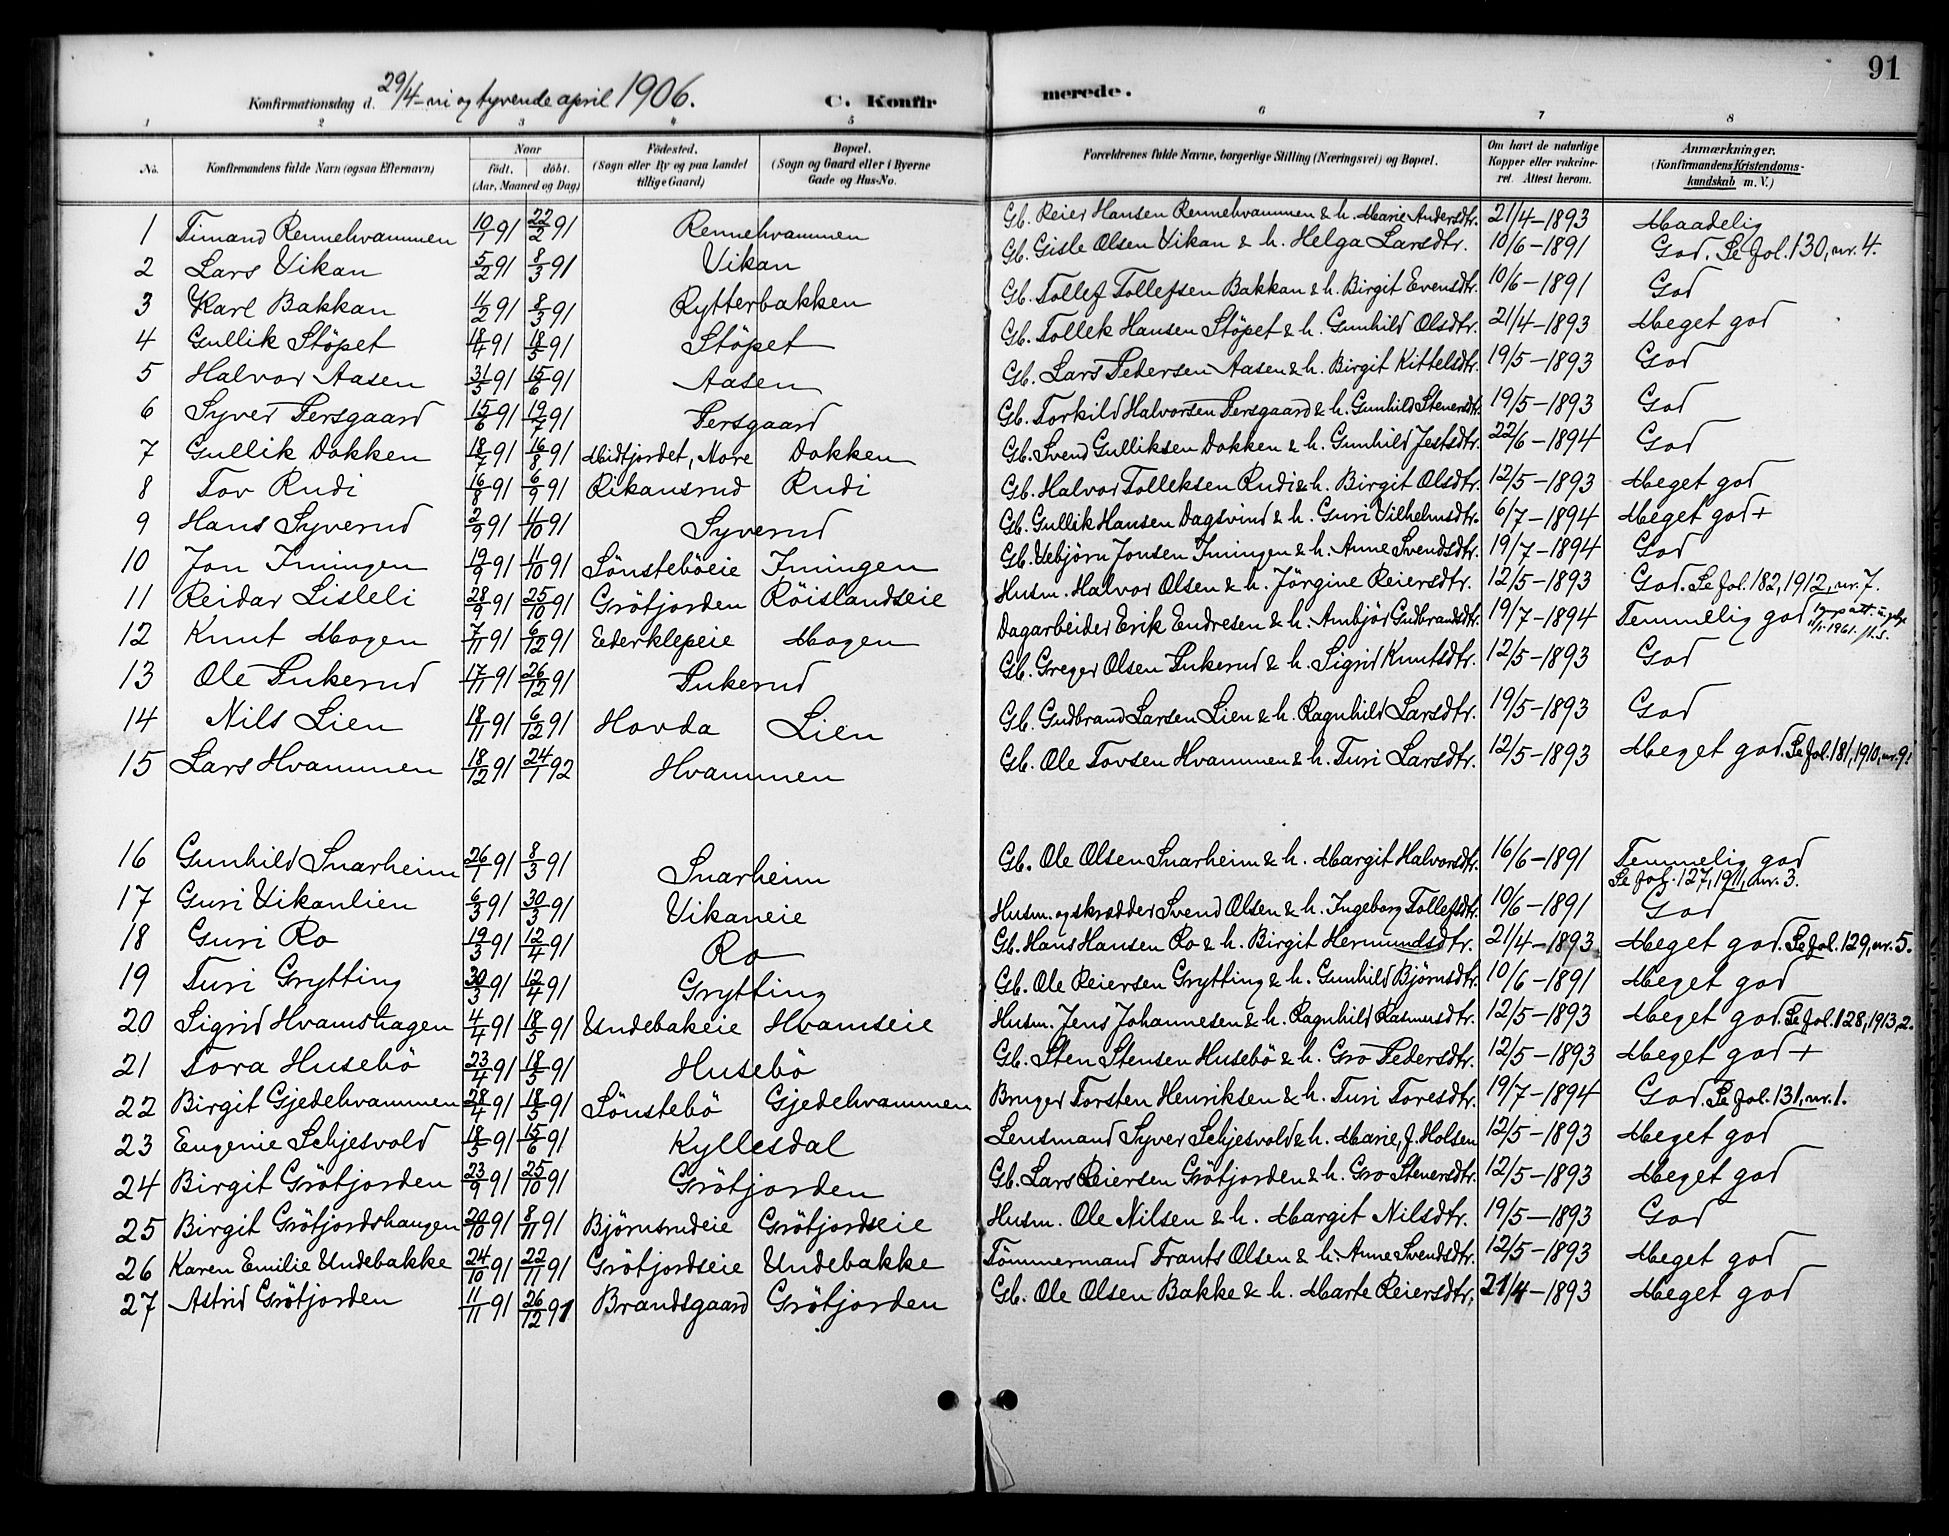 91
Konfirmationsdag d. 29/4 - ni og tyvende april 1906. C. Konfirmerede.
1 2 3 4 5 6 7 8
No. Konfirmandens fulde Navn (ogsaa Efternavn) Naar født. døbt. (Aar, Maaned og Dag) Fødested. (Sogn eller By og paa Landet tillige Gaard) Bopæl. (Sogn og Gaard eller i Byerne Gade og Hus-No. Forældrenes fulde Navne, borgerlige Stilling (Næringsvei) og Bopæl. Om havt de naturlige Kopper eller vakcineret. Attest herom. Anmærkninger. (Konfirmandens Kristendomskundskab m. V.)
1 Timand Rennehvammen 10/1 91 22/2 91 Rennehvammen Gb. Reier Hansen Rennehvammen & h. Marie Andersdtr. 21/4-1893 Maadelig
2 Lars Vikan 5/2 91 8/3 91 Vikan Gb. Gisle Olsen Vikan & h. Helga Larsdtr. 10/6-1891 God. Se fol. 130, nr. 4.
3 Karl Bakkan 4/2 91 8/3 91 Rytterbakken Gb. Tollef Tollefsen Bakkan & h. Birgit Evensdtr. 10/6-1891 God
4 Gullik Stöpet 18/4 91 18/5 91 Stöpet Gb. Tollek Hansen Stöpet & h. Gunhild Olsdtr. 21/4-1893 Meget god
5 Halvor Aasen 31/5 91 15/6 91 Aasen Gb. Lars Pedersen Aasen & h. Birgit Kittelsdtr. 19/5-1893 God
6 Syver Persgaard 15/6 91 19/7 91 Persgaard Gb. Torkild Halvorsen Persgaard & h. Gunhild Stenersdtr. 19/5-1893 God
7 Gullik Dokken 18/7 91 16/8 91 Midtjordet, Nore Dokken Gb. Svend Gulliksen Dokken & h. Gunhild Jestsdtr. 22/6-1894 God
8 Tov Rudi 16/8 91 6/9 91 Rikansrud Rudi Gb. Halvor Tolleksen Rudi & h. Birgit Olsdtr. 12/5-1893 Meget god
9 Hans Syverud 2/9 91 11/10 91 Syverud Gb. Gullik Hansen Dagsvind & h. Guri Vilhelmsdtr. 6/7-1894 Meget god +
10 Jon Imingen 19/9 91 11/10 91 Sönsteböeie Imingen Gb. Vebjørn Jonsen Imingen & h. Anne Svendsdtr. 19/7-1894 God
11 Reidar Lisleli 28/9 91 25/10 91 Grötjorden Röislandseie Husm. Halvor Olsen & h. Jörgine Reiersdtr. 12/5-1893 God. Se fol. 182, 1912, nr. 7.
12 Knut Mogen 7/11 91 6/12 91 Ederklepeie Mogen Dagarbeider Erik Endresen & h. Ambjör Gudbrandsdtr. 19/7-1894 Temmelig god 1961.
13 Ole Pukerud 17/11 91 26/12 91 Pukerud Gb. Greger Olsen Pukerud & h. Sigrid Knutsdtr. 12/5-1893 God
14 Nils Lien 18/11 91 6/12 91 Hovda Lien Gb. Gudbrand Larsen Lien & h. Ragnhild Larsdtr. 19/5-1893 God
15 Lars Hvammen 18/12 91 24/1 92 Hvammen Gb. Ole Tovsen Hvammen & h. Turi Larsdtr. 12/5-1893 Meget god. Se fol. 181, 1910, nr. 9.
16 Gunhild Snarheim 26/1 91 8/3 91 Snarheim Gb. Ole Olsen Snarheim & h. Margit Halvorsdtr. 16/6-1891 Temmelig god
Se fol. 127, 1911, nr. 3.
17 Guri Vikanlien 6/3 91 30/3 91 Vikaneie Husm. og skrædder Svend Olsen & h. Ingeborg Tollefsdtr. 10/6-1891 God
18 Guri Ro 19/3 91 12/4 91 Ro Gb. Hans Hansen Ro & h. Birgit Hermundsdtr. 21/4-1893 Meget god. Se fol. 129, nr. 5.
19 Turi Grytting 30/3 91 12/4 91 Grytting Gb. Ole Reiersen Grytting & h. Gunhild Bjørnsdtr. 10/6-1891 Meget god
20 Sigrid Hvamshagen 4/4 91 18/5 91 Undebakeie Hvamseie Husm. Jens Johannesen & h. Ragnhild Rasmusdtr. 12/5-1893 Meget god. Se fol. 128, 1913, 2.
21 Tora Husebö 23/4 91 18/5 91 Husebö Gb. Sten Stensen Husebö & h. Gro Pedersdtr. 12/5-1893 Meget god +
22 Birgit Gjedehvammen 28/4 91 18/5 91 Sönstebö Gjedehvammen Bruger Torsten Henriksen & h. Turi Toresdtr. 19/7-1894 God. Se fol. 131, nr. 1.
23 Eugenie Schjesvold 18/5 91 15/6 91 Kyllesdal Lensmand Syver Schjesvold & h. Marie, f. Holsen 12/5-1893 Meget god
24 Birgit Grötjorden 23/9 91 25/10 91 Grötjorden Gb. Lars Reiersen Grötjorden & h. Gro Stenersdtr. 12/5-1893 Meget god
25 Birgit Grötjordshaugen 20/10 91 8/11 91 Bjørnsrudeie Grötjordseie Husm. Ole Nilsen & h. Margit Nilsdtr. 19/5-1893 God
26 Karen Emilie Undebakke 24/10 91 22/11 91 Grötjordseie Undebakke Tömmermand Frants Olsen & h. Anne Svendsdtr. 12/5-1893 Meget god
27 Astrid Grötjorden 11/11 91 26/12 91 Brandsgaard Grötjorden Gb. Ole Olsen Bakke & h. Marte Reiersdtr. 21/4-1893 Meget god